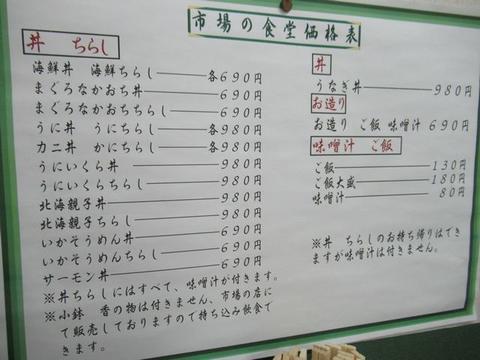 市場の食堂価格表
丼 ちらし
海鮮丼 海鮮ちらし――各690円
まぐろなかおち丼――690円
まぐろなかおちちらし――690円
うに丼 うにちらし――各980円
カニ丼 かにちらし――各980円
うにいくら丼――980円
うにいくらちらし――980円
北海親子丼――690円
北海親子ちらし――690円
いかそうめん丼――690円
いかそうめんちらし――690円
サーモン丼――690円
※丼ちらしにはすべて、味噌汁が付きます。
※小鉢 香の物は付きません、市場の店に
て販売しておりますので持ち込み飲食で
きます。
丼
うなぎ丼――980円
お造り
お造り ご飯 味噌汁 690円
味噌汁 ご飯
ご飯――130円
ご飯大盛――180円
味噌汁――80円
※丼 ちらしのお持ち帰りはでき
ますが味噌汁は付きません。